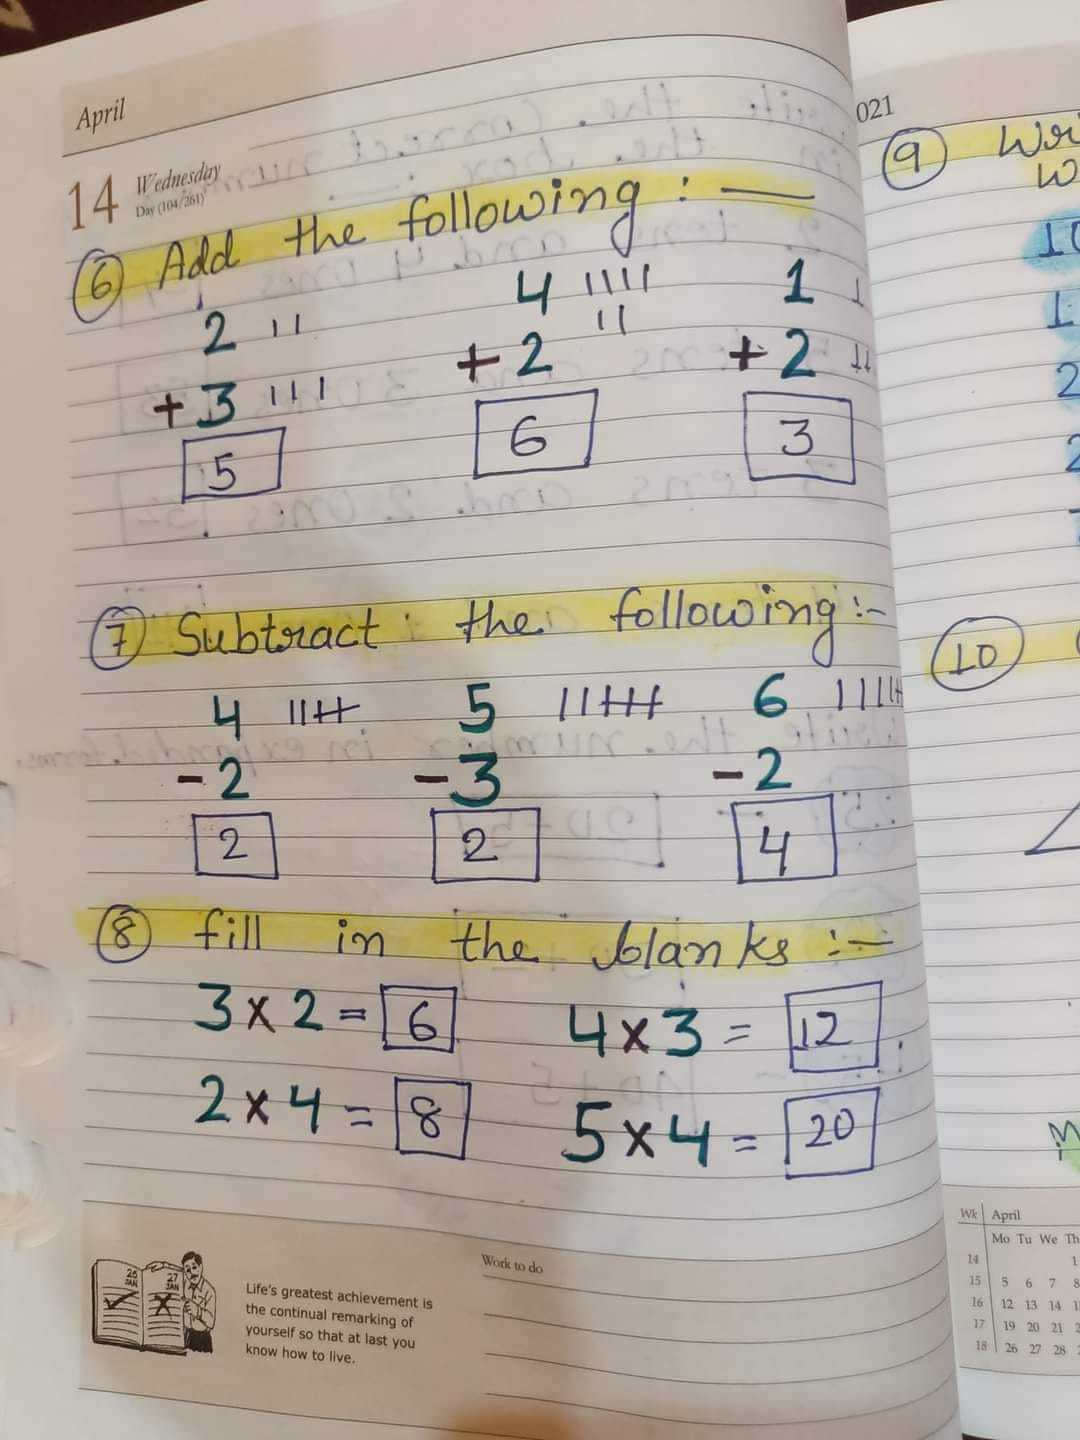 April
14 Wednesday
Day (104/261)
6 Add the following : —
2 4 1
+ 3 + 2 + 2
5 6 3
7 Subtract the following :-
4 5 6
- 2 - 3 - 2
2 2 4
8 fill in the blanks :-
3 x 2 = 6 4 x 3 = 12
2 x 4 = 8 5 x 4 = 20
26 JAN 27 JAN
Life's greatest achievement is
the continual remarking of
yourself so that at last you
know how to live.
Work to do
021
9
10
Wk April
Mo Tu We Th
14 1
15 5 6 7 8
16 12 13 14
17 19 20 21
18 26 27 28